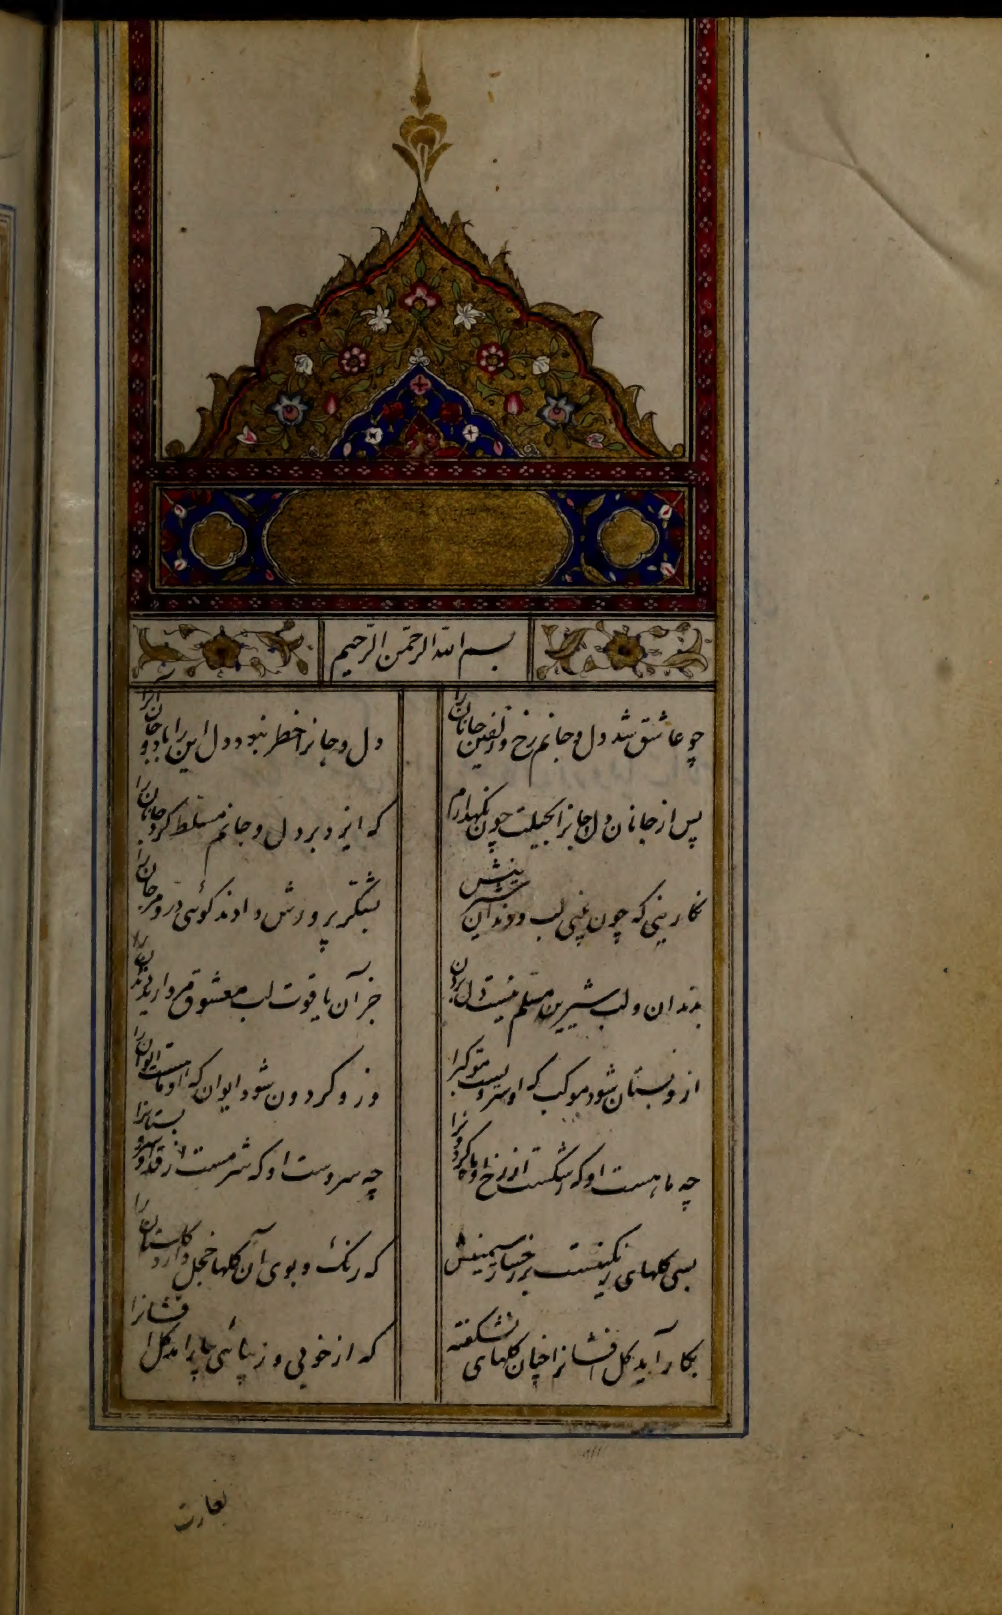 بسم الله الرحمن الرحیم
چو عاشق شد دل و جانم رخ و زلفین جانان را
دل و جانرا خطر نبود دل این را باد و جان آنرا
پس از جانان دل و جانرا بحیلت چون نگهدارم
که ایزد بر دل و جانم مسلط کرد جانان را
نگارینی که چون بینی لب و دندان شیرینش
بشکر پرورش دادند گوئی در و مرجان را
بدندان و لب شیرین مسلم نیست دل بردن
جز آن یاقوت لب معشوق مروارید دندان را
ازو بستان شود موکب که او سرو است موکبرا
وزو گردون شود ایوان که او ماهست ایوان را
چه ماهست او که رشکست از رخ او ماه گردونرا
چه سروست او که شرمست از قد او سرو بستانرا
بسی گلهای رنگینست بر رخسار سیمینش
که رنگ و بوی آن گلها خجل دارد گلستان را
بکار آید گل افشانرا چنان گلهای نشکفته
که از خوبی و زیبائی گل افشانرا
بغارت